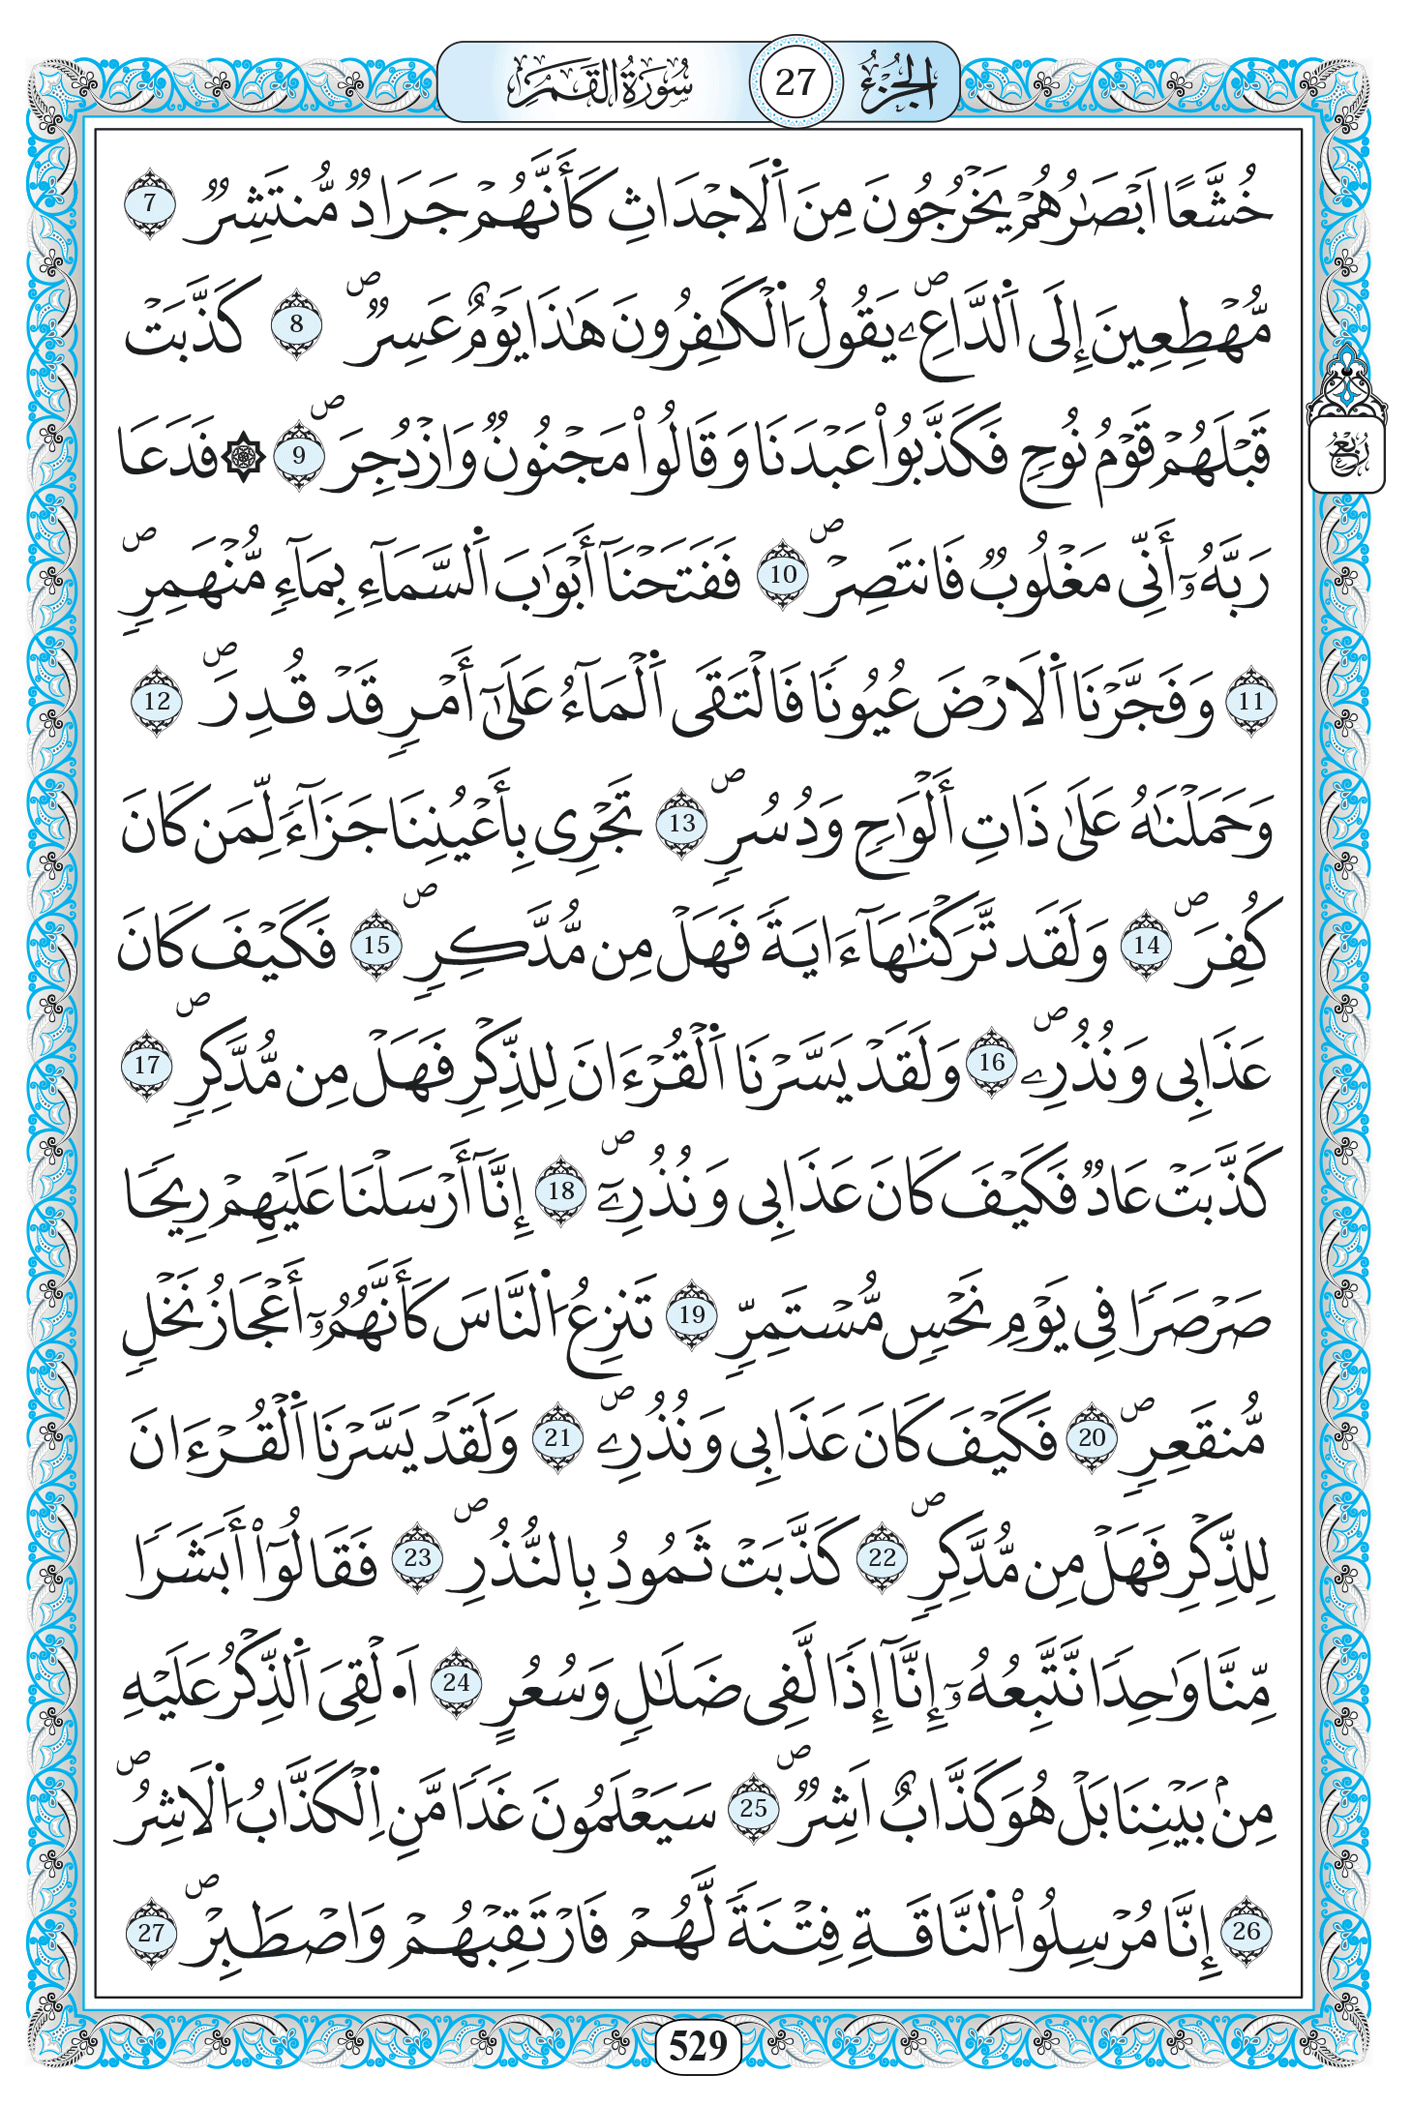 الجزء 27 سورة القمر
خُشَّعًا اَبْصَٰرُهُمْ يَخْرُجُونَ مِنَ اَ۬لَاجْدَاثِ كَأَنَّهُمْ جَرَادٞ مُّنتَشِرٞ 7
مُّهْطِعِينَ إِلَى اَ۬لدَّاعِۦ ص يَقُولُ اُ۬لْكَٰفِرُونَ هَٰذَا يَوْمٌ عَسِرٞ ص 8 كَذَّبَتْ
قَبْلَهُمْ قَوْمُ نُوحٖ فَكَذَّبُواْ عَبْدَنَا وَقَالُواْ مَجْنُونٞ وَازْدُجِرَ ص 9 ۞ فَدَعَا
رَبَّهُۥٓ أَنِّي مَغْلُوبٞ فَانتَصِرْ ص 10 فَفَتَحْنَآ أَبْوَٰبَ اَ۬لسَّمَآءِ بِمَآءٖ مُّنْهَمِرٖ ص
11 وَفَجَّرْنَا اَ۬لَارْضَ عُيُونٗا فَالْتَقَى اَ۬لْمَآءُ عَلَىٰٓ أَمْرٖ قَدْ قُدِرَ ص 12
وَحَمَلْنَٰهُ عَلَىٰ ذَاتِ أَلْوَٰحٖ وَدُسُرٖ ص 13 تَجْرِي بِأَعْيُنِنَا جَزَآءٗ لِّمَن كَانَ
كُفِرَ ص 14 وَلَقَد تَّرَكْنَٰهَآ ءَايَةٗ فَهَلْ مِن مُّدَّكِرٖ ص 15 فَكَيْفَ كَانَ
عَذَابِي وَنُذُرِۦ ص 16 وَلَقَدْ يَسَّرْنَا اَ۬لْقُرْءَانَ لِلذِّكْرِ فَهَلْ مِن مُّدَّكِرٖ ص 17
كَذَّبَتْ عَادٞ فَكَيْفَ كَانَ عَذَابِي وَنُذُرِۦٓ ص 18 إِنَّآ أَرْسَلْنَا عَلَيْهِمْ رِيحٗا
صَرْصَرٗا فِي يَوْمِ نَحْسٖ مُّسْتَمِرّٖ 19 تَنزِعُ اُ۬لنَّاسَ كَأَنَّهُمُۥٓ أَعْجَازُ نَخْلٖ
مُّنقَعِرٖ ص 20 فَكَيْفَ كَانَ عَذَابِي وَنُذُرِۦ ص 21 وَلَقَدْ يَسَّرْنَا اَ۬لْقُرْءَانَ
لِلذِّكْرِ فَهَلْ مِن مُّدَّكِرٖ ص 22 كَذَّبَتْ ثَمُودُ بِالنُّذُرِ ص 23 فَقَالُوٓاْ أَبَشَرٗا
مِّنَّا وَٰحِدٗا نَّتَّبِعُهُۥٓ إِنَّآ إِذٗا لَّفِي ضَلَٰلٖ وَسُعُرٍ 24 اَ۟لْقِيَ اَ۬لذِّكْرُ عَلَيْهِ
مِنۢ بَيْنِنَا بَلْ هُوَ كَذَّابٌ اَشِرٞ ص 25 سَيَعْلَمُونَ غَدٗا مَّنِ اِ۬لْكَذَّابُ اُ۬لَاشِرُ ص
26 إِنَّا مُرْسِلُواْ اُ۬لنَّاقَةِ فِتْنَةٗ لَّهُمْ فَارْتَقِبْهُمْ وَاصْطَبِرْ ص 27
ربع
529